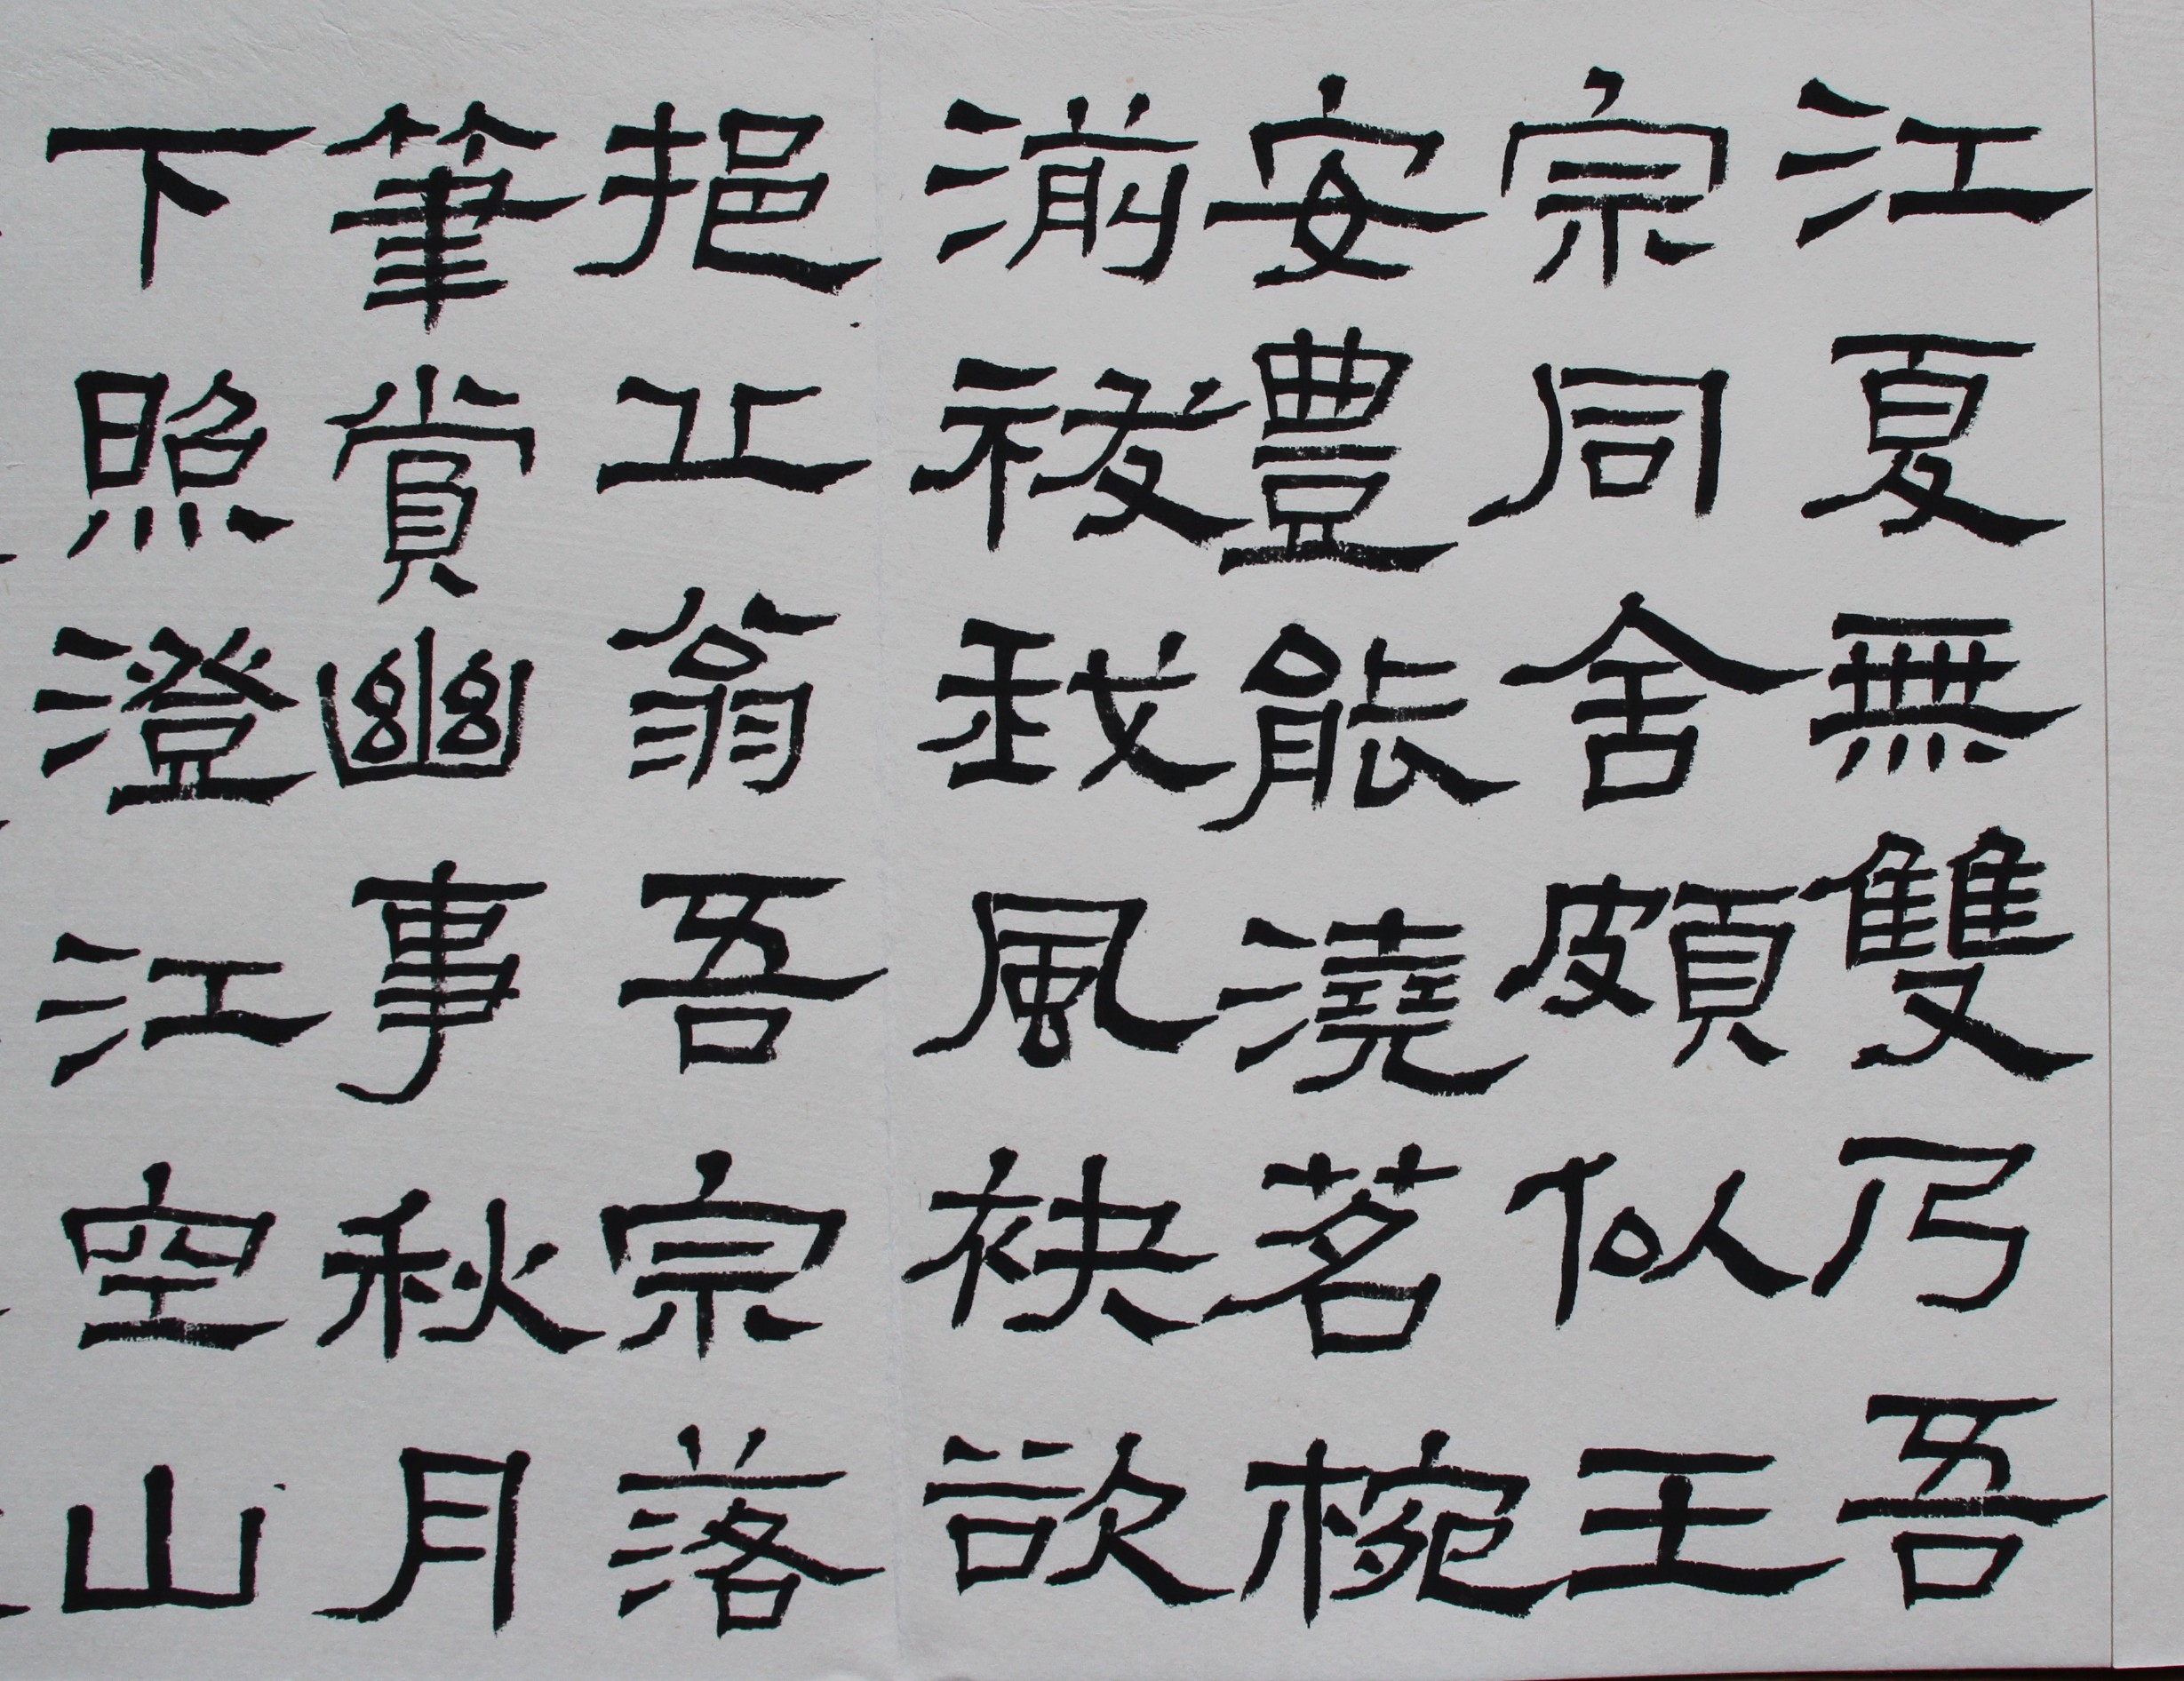 江夏無雙乃吾
宗同舍頗似王
安豊能澆茗椀
湔祓我風袂欲
挹丘翁吾宗落
筆賞幽事秋月
下照澄江空山